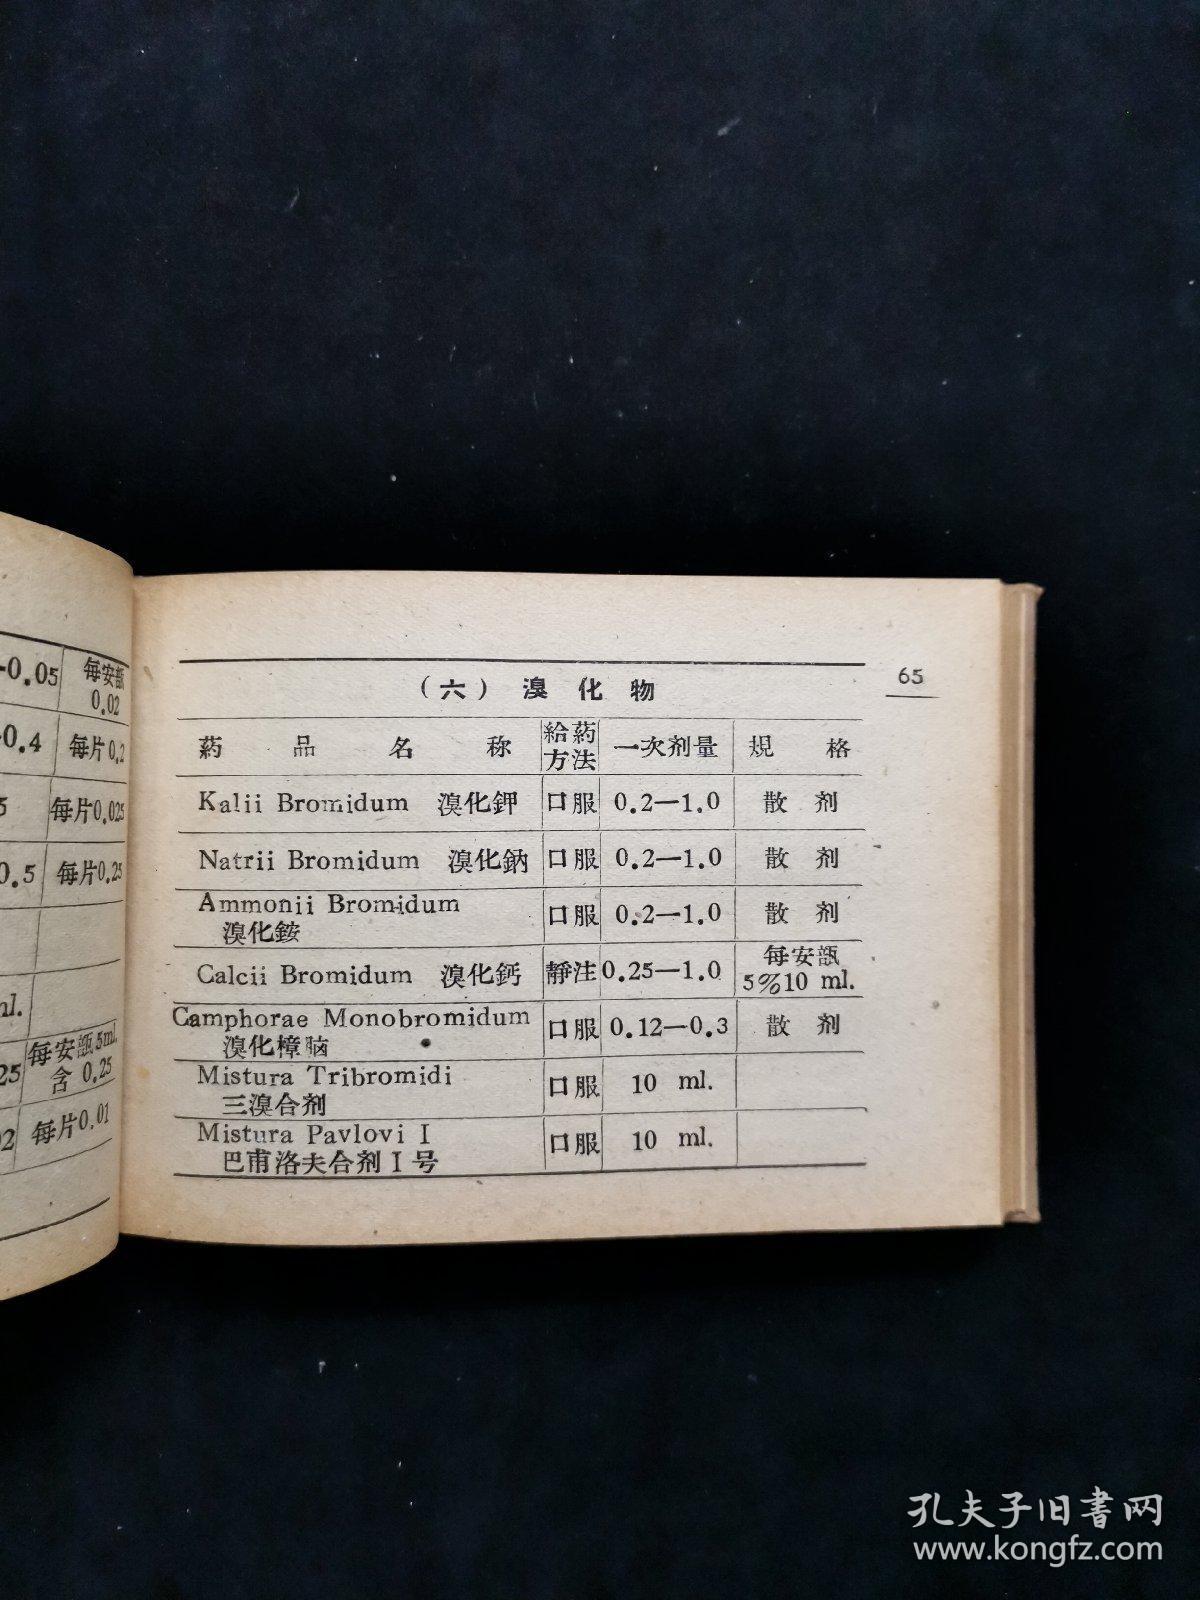 -0.05 每安瓿
0.02
0.4 每片0.2
5 每片0.025
0.5 每片0.25
ml.
25 每安瓿5ml.
含 0.25
02 每片0.01
65
(六) 溴化物
葯品名称 給葯方法 一次剂量 規格
Kalii Bromidum 溴化鉀 口服 0.2—1.0 散剂
Natrii Bromidum 溴化鈉 口服 0.2—1.0 散剂
Ammonii Bromidum
溴化銨 口服 0.2—1.0 散剂
Calcii Bromidum 溴化鈣 靜注 0.25—1.0 每安瓿
5%10 ml.
Camphorae Monobromidum
溴化樟脑 口服 0.12—0.3 散剂
Mistura Tribromidi
三溴合剂 口服 10 ml.
Mistura Pavlovi I
巴甫洛夫合剂I号 口服 10 ml.
孔夫子旧書网
www.kongfz.com